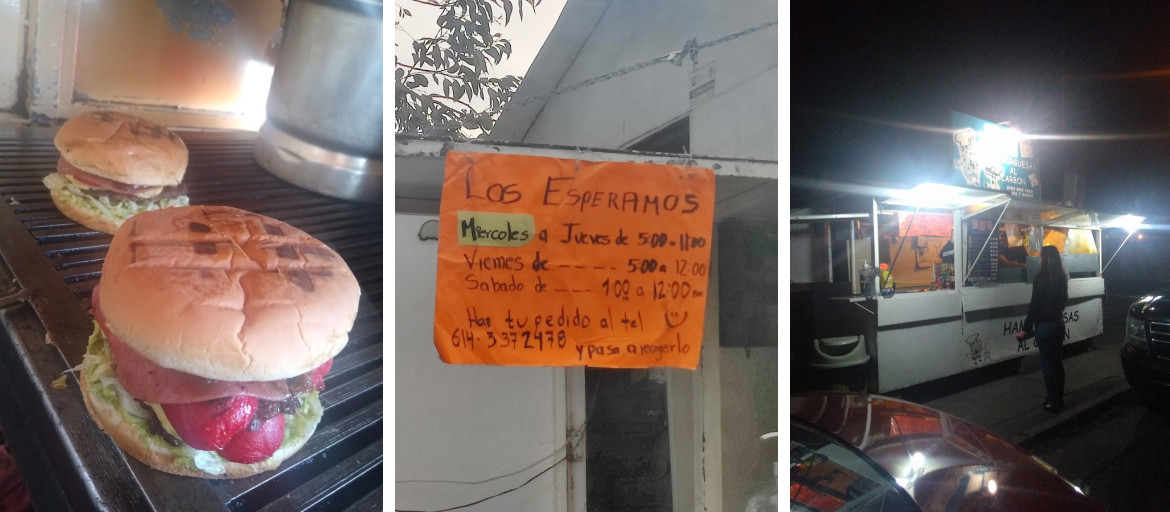 Los Esperamos
Miercoles a Jueves de 5:00 a 11:00
Viernes de ---- 5:00 a 12:00
Sabado de --- 1:00 a 12:00 am
Haz tu pedido al tel
614-3372478 y pasa a recogerlo
AL
CARBON
HAMBURGUESAS
AL CARBON